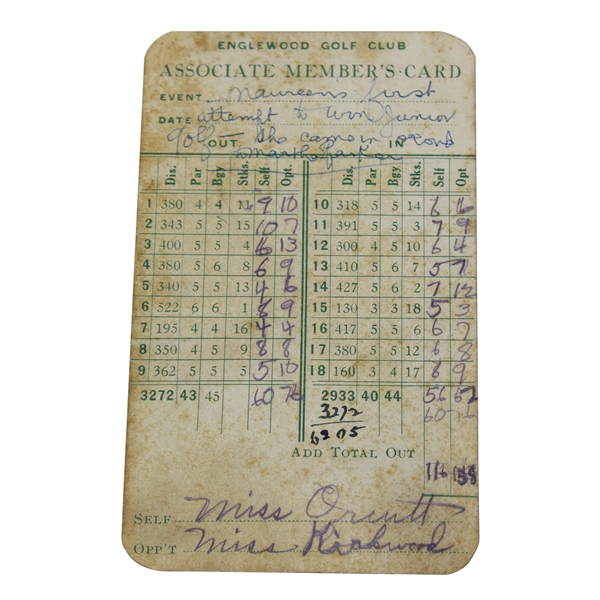 ENGLEWOOD GOLF CLUB
ASSOCIATE MEMBER'S·CARD
EVENT Maureen's first
DATE attempt to win Junior
golf OUT she came in second IN
to Martha Parker
Dis. Par Bgy Stks. Self Opt. Dis. Par Bgy Stks. Self Opt.
1 380 4 4 11 9 10 10 318 5 5 14 6 16
2 343 5 5 15 10 7 11 391 5 5 3 7 9
3 400 5 5 4 6 13 12 300 4 5 10 6 4
4 380 5 6 8 6 9 13 410 5 6 7 5 7
5 340 5 5 13 4 6 14 427 5 6 2 7 12
6 522 6 6 1 8 9 15 130 3 3 18 5 3
7 195 4 4 16 4 4 16 417 5 5 6 6 7
8 350 4 5 9 8 8 17 380 5 5 12 6 8
9 362 5 5 5 5 10 18 160 3 4 17 8 9
3272 43 45 60 76 2933 40 44 56 62
3272 60
6205
ADD TOTAL OUT
116
SELF Miss Orcutt
OPP'T Miss Kirkwood